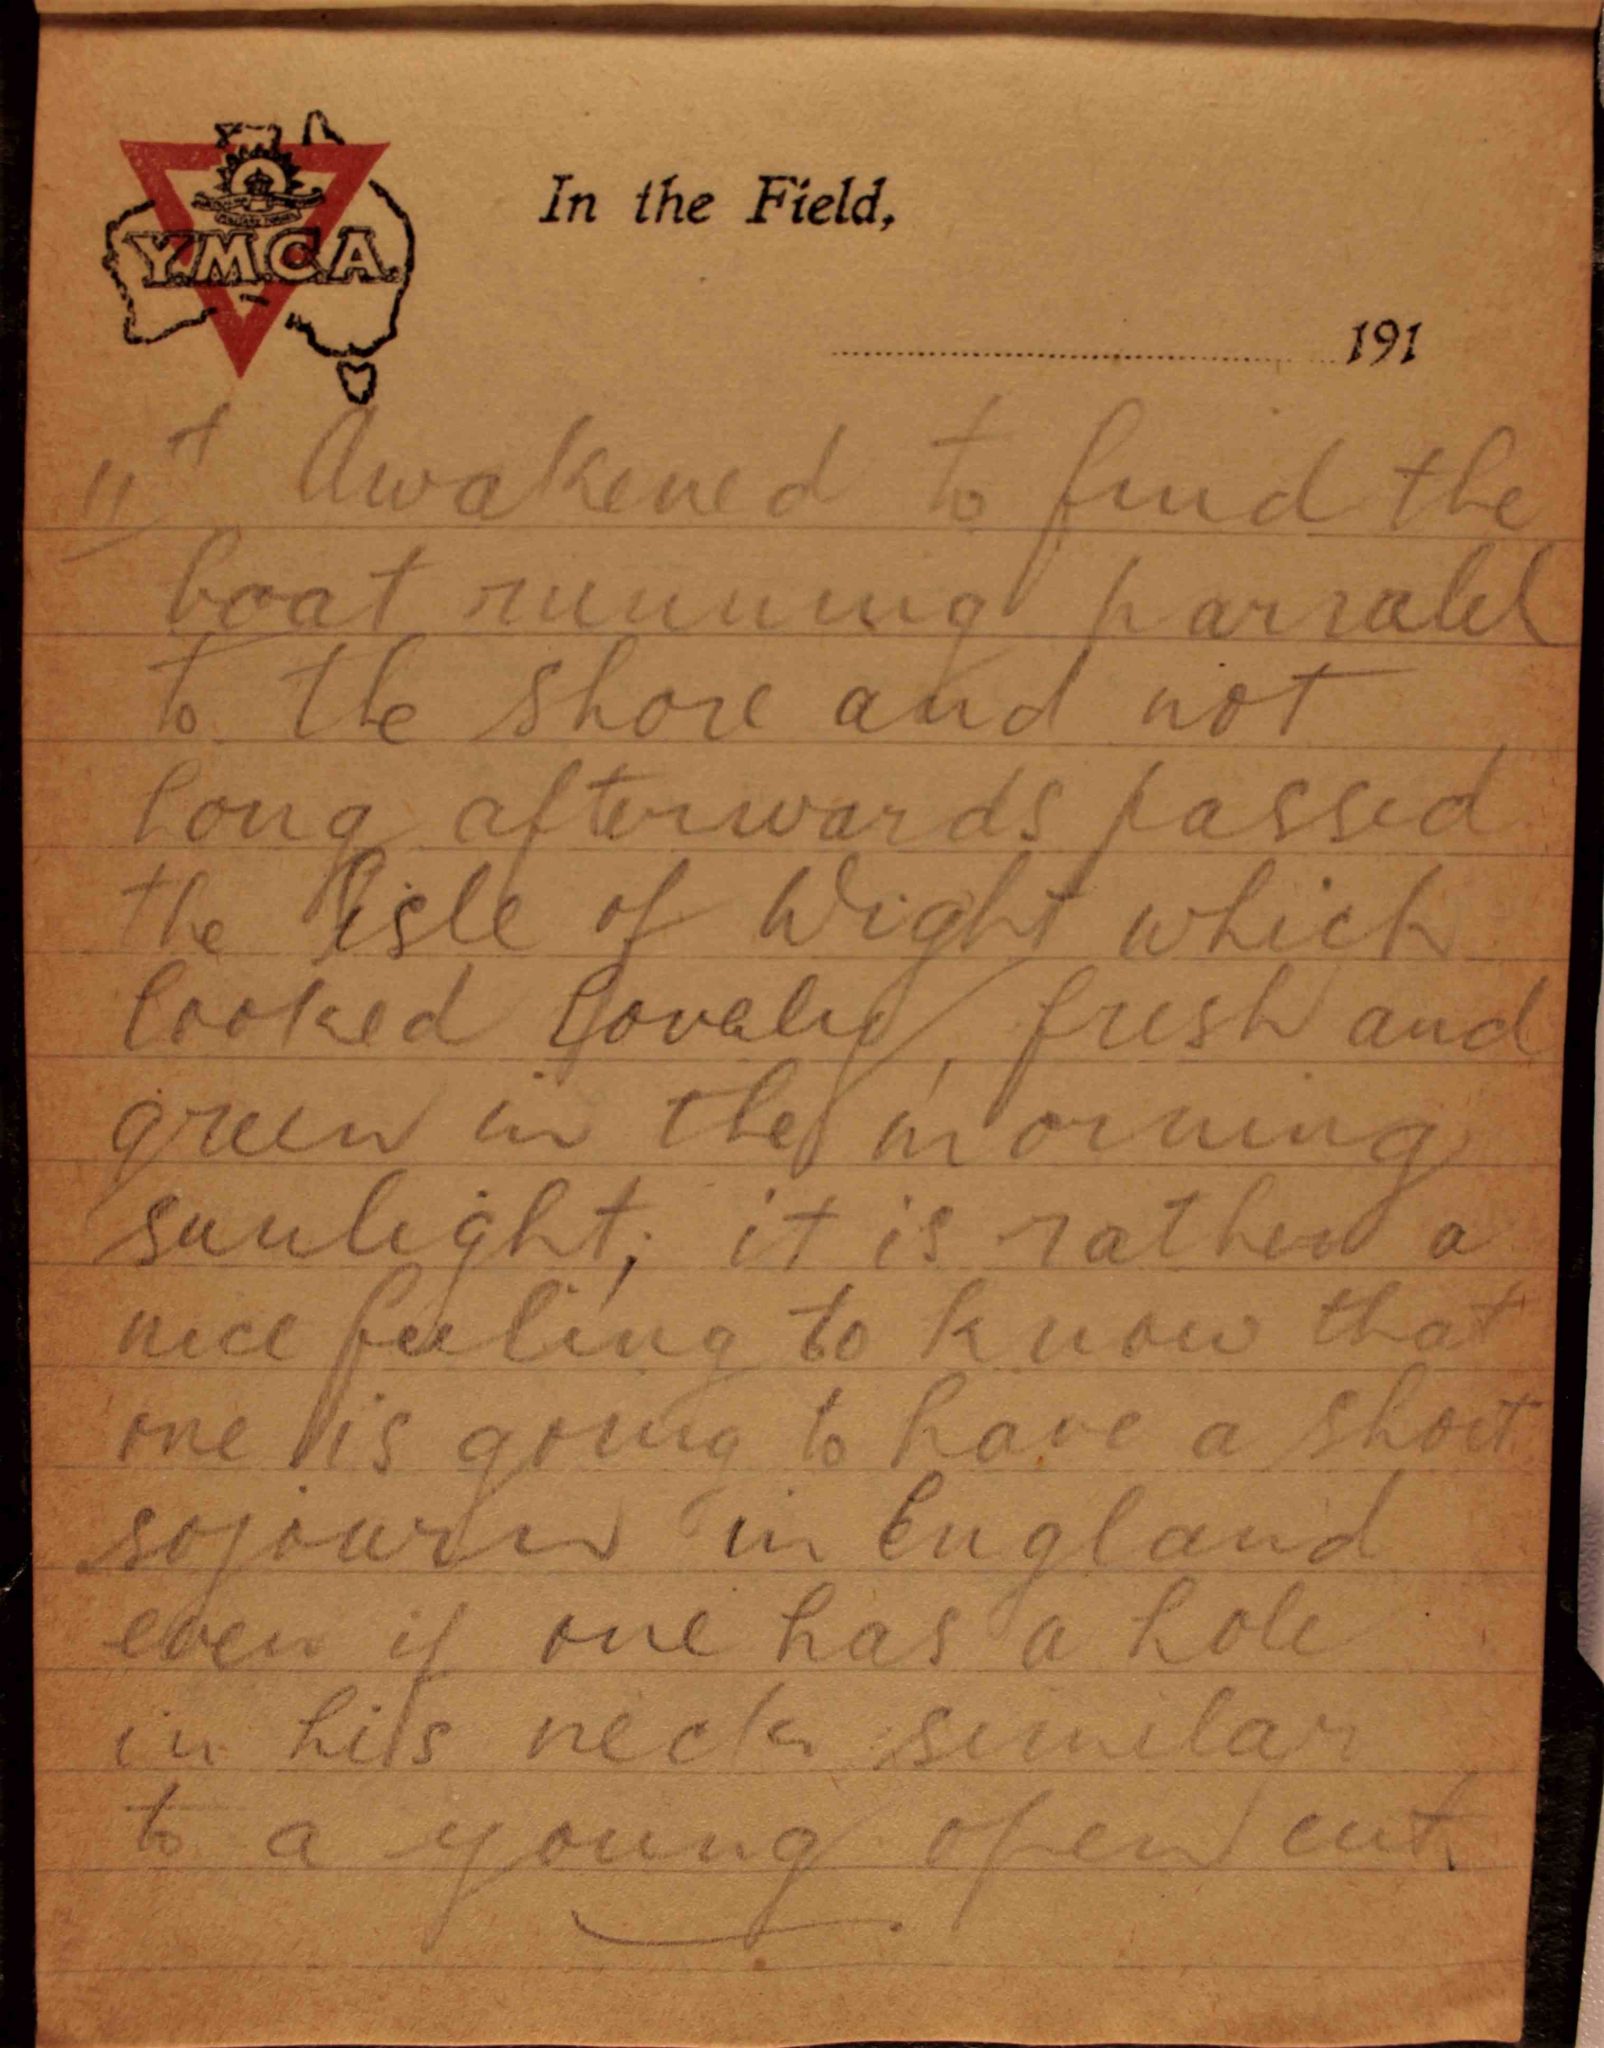 Y.M.C.A.
In the Field,
191
11th Awakened to find the
boat running parralel
to the shore and not
long afterwards passed
the Isle of Wight which
looked lovely, fresh and
green in the morning
sunlight; it is rather a
nice feeling to know that
one is going to have a short
sojourn in England
even if one has a hole
in his neck similar
to a young open cut.